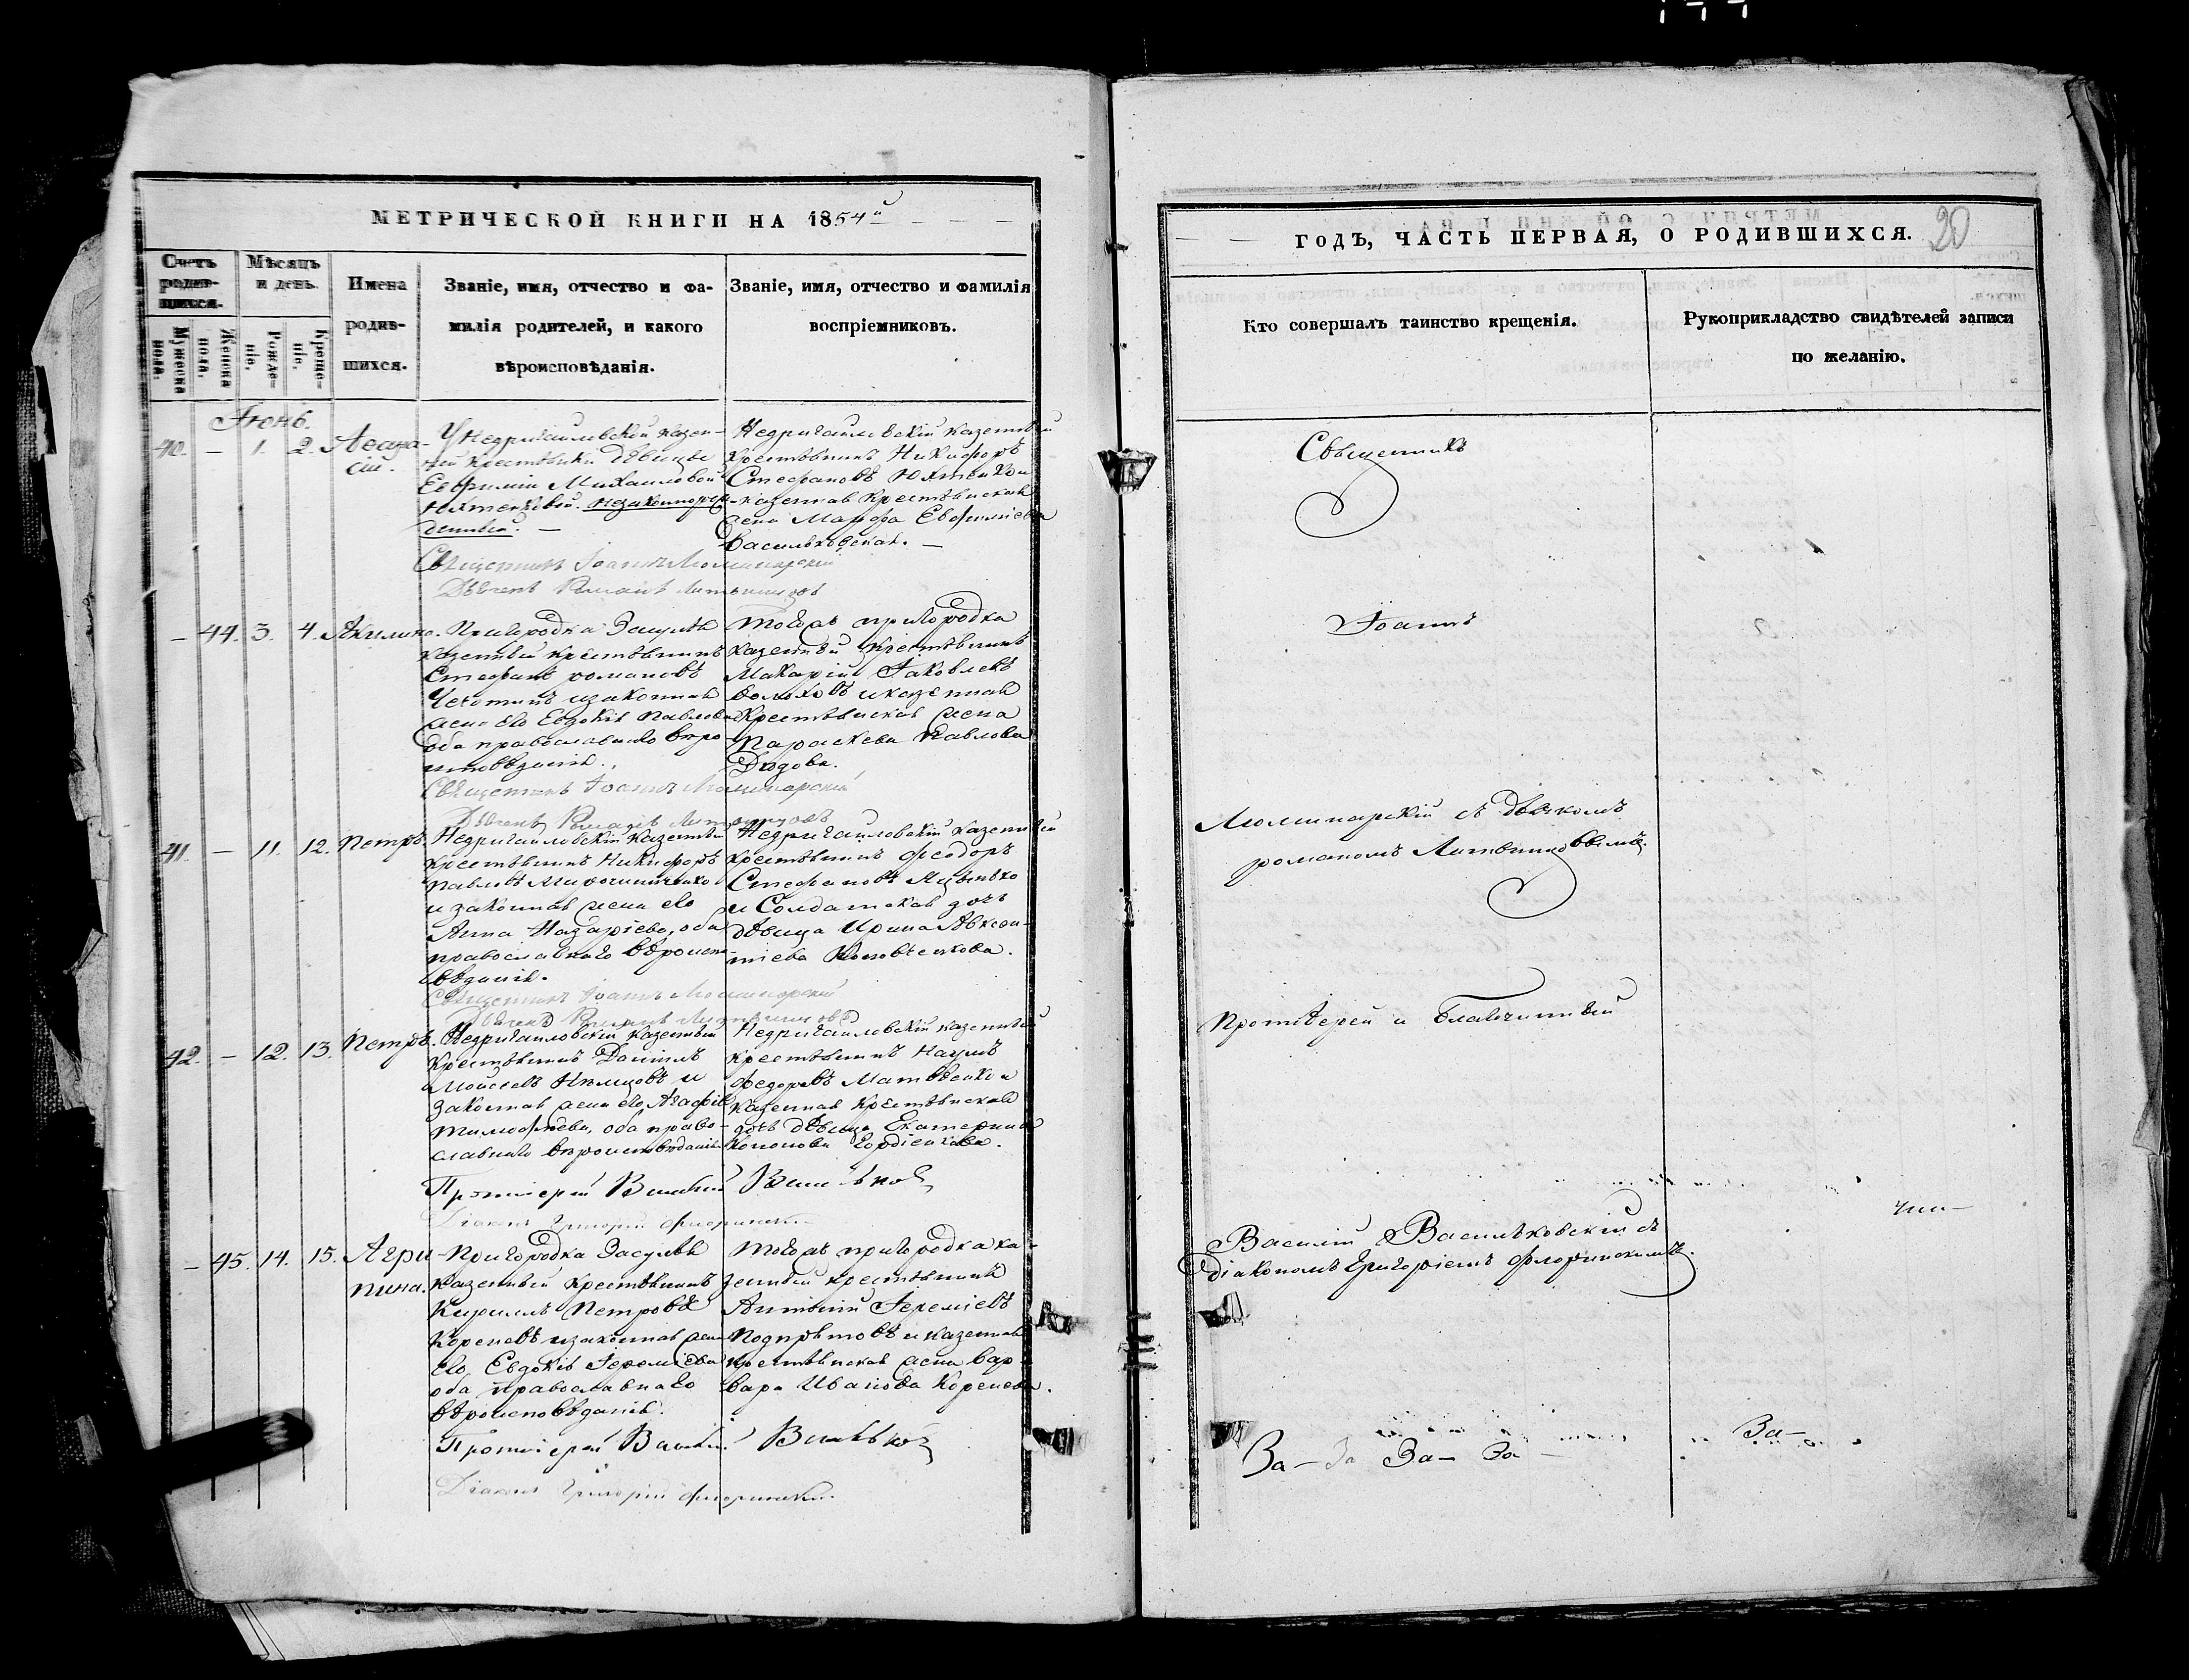 МЕТРИЧЕСКОЙ КНИГИ НА 1854й
Счетъ родившихся.
Мужеска пола.
Женска пола.
Мѣсяцъ и день.
Рожденіе.
Крещеніе.
Имена родившихся.
Званіе, имя, отчество и фамилія родителей, и какого вѣроисповѣданія.
Званіе, имя, отчество и фамилія воспріемниковъ.
Іюнь.
40. — 1. 2.
У Недригайловской казен-
ной крестьянки дѣвицы
Евфиміи Михайловой
незаконнорож-
денный. —
Недригайловскій казенный
крестьянинъ Никифоръ
Стефановъ
казенная крестьянская
жена Марфа Евфиміева
Васильковская. —
Священникъ Іоаннъ Люминарскій
Дьячекъ Романъ Литвиновъ
— 44. 3. 4. Акилина.
Пригородка Засулья
казенный крестьянинъ
Стефанъ романовъ
и законная
жена его Евдокія Павлова
оба православнаго вѣро
исповѣданія.
Тогожъ пригородка
казенный крестьянинъ
Макарій Іаковлевъ
и казенная
крестьянская жена
Параскева Павлова
Дядова.
Священникъ Іоаннъ Люминарскій
Дьячекъ Романъ Литвиновъ
41. — 11. 12. Петръ.
Недригайловскій казенный
крестьянинъ Никифоръ
Павловъ Мирошниченко
и законная жена его
Анна Назаріева, оба
православнаго вѣроиспо-
вѣданія.
Недригайловскій казенный
крестьянинъ Феодоръ
Стефановъ Яценко
и Солдатская дочь
дѣвица Ирина Авксен-
тіева
Священникъ Іоаннъ Люминарскій
Дьячекъ Романъ Литвиновъ
42. — 12. 13. Петръ.
Недригайловскій казенный
крестьянинъ Даніилъ
Моисеевъ Нѣмцовъ и
законная жена его Агафія
Тимофѣева, оба право-
славнаго вѣроисповѣданія.
Недригайловскій казенный
крестьянинъ Наумъ
Федоровъ Матвѣенко и
казенная крестьянская
дочь дѣвица Екатерина
Кононова Гордіенкова.
Протоіерей Василій Васильков
Діаконъ Григорій Флоринскій.
— 45. 14. 15. Агри-
пина.
Пригородка Засулья
казенный крестьянинъ
Кириллъ Петровъ
Кореневъ и законная жена
его Евдокія Іереміева
оба православнаго
вѣроисповѣданія.
Тогожъ пригородка ка-
зенный крестьянинъ
Антоній Іереміевъ
и казенная
крестьянская жена Вар-
вара Иванова Коренева.
Протоіерей Василій Васильков
Діаконъ Григорій Флоринскій.
ГОДЪ, ЧАСТЬ ПЕРВАЯ, О РОДИВШИХСЯ. 20
Кто совершалъ таинство крещенія.
Рукоприкладство свидѣтелей записи
по желанію.
Священникъ
Іоаннъ
Люминарскій съ дьячкомъ
романомъ Литвиновымъ.
Протоіерей и Благочинный
Василій Васильковскій съ
діакономъ Григоріемъ Флоринскимъ.
За — За За — За —
За —